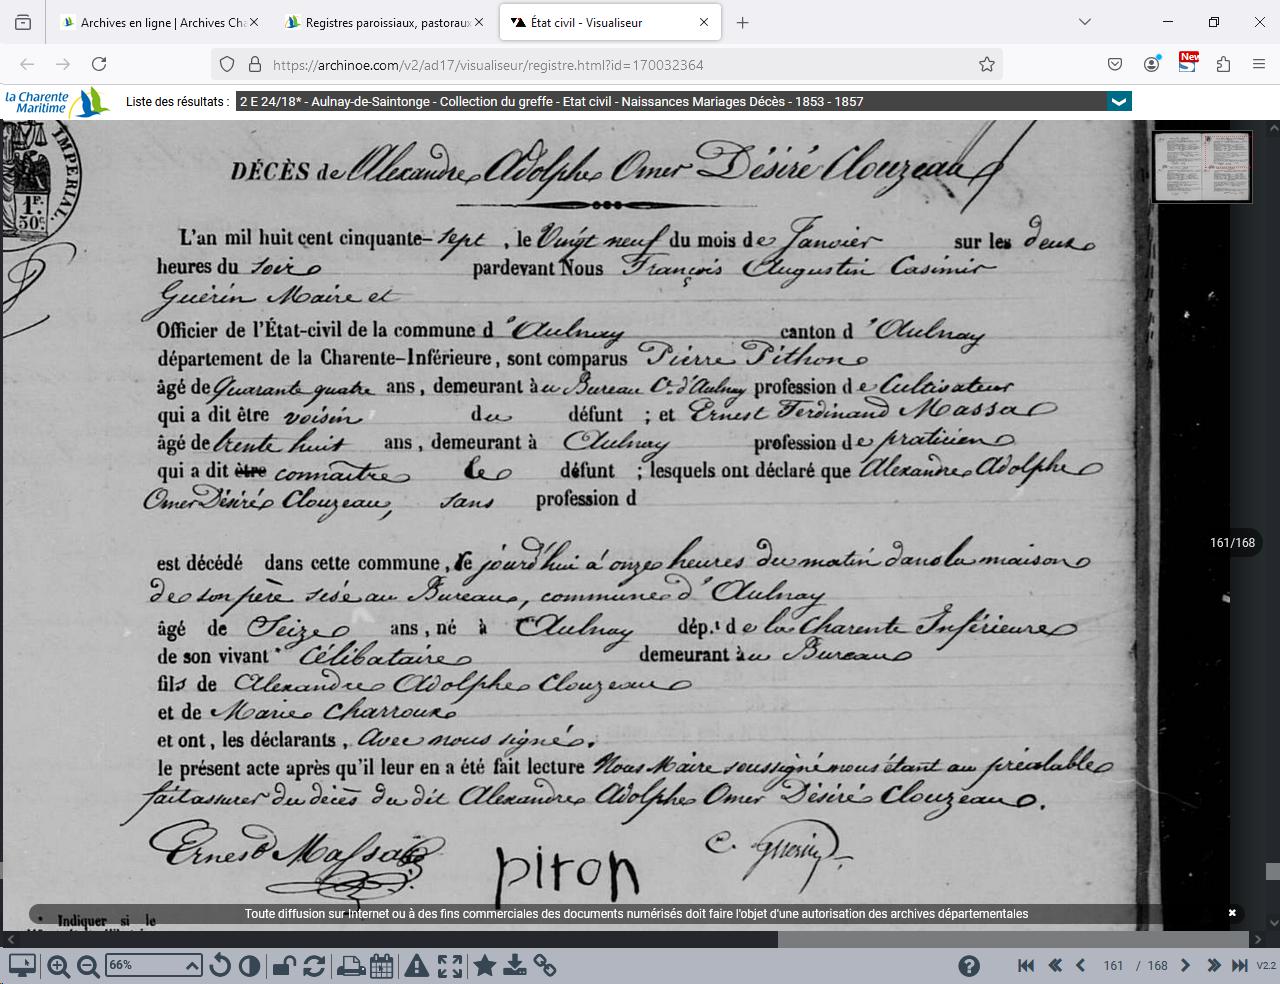 Archives en ligne | Archives Cha
Registres paroissiaux, pastoraux
État civil - Visualiseur
https://archinoe.com/v2/ad17/visualiseur/registre.html?id=170032364
New
la Charente
Maritime
Liste des résultats :
2 E 24/18* - Aulnay-de-Saintonge - Collection du greffe - Etat civil - Naissances Mariages Décès - 1853 - 1857
IMPERIAL.
1F.
50c.
DÉCÈS de Alexandre Adolphe Omer Désiré Clouzeau
L'an mil huit cent cinquante-sept, le Vingt neuf du mois de Janvier sur les deux
heures du soir pardevant Nous François Augustin Casimir
Guérin Maire et
Officier de l'État-civil de la commune d'Aulnay canton d'Aulnay
département de la Charente-Inférieure, sont comparus Pierre Pithon
âgé de Quarante quatre ans, demeurant au Bureau Cne d'Aulnay profession de Cultivateur
qui a dit être voisin du défunt ; et Ernest Ferdinand Massa
âgé de trente huit ans, demeurant à Aulnay profession de praticien
qui a dit être connaître le défunt ; lesquels ont déclaré que Alexandre Adolphe
Omer Désiré Clouzeau, sans profession d
est décédé dans cette commune, ce jourd'hui à onze heures du matin dans la maison
de son père sise au Bureau, commune d'Aulnay
âgé de Seize ans, né à Aulnay dép.t de la Charente Inférieure
de son vivant * Célibataire demeurant au Bureau
fils de Alexandre Adolphe Clouzeau
et de Marie Charroux
et ont, les déclarants, avec nous signé.
le présent acte après qu'il leur en a été fait lecture Nous Maire soussigné nous étant au préalable
fait assurer du décès du dit Alexandre Adolphe Omer Désiré Clouzeau.
Ernest Massa
piton
C. Guerin
* Indiquer si le
Toute diffusion sur Internet ou à des fins commerciales des documents numérisés doit faire l'objet d'une autorisation des archives départementales
161/168
66%
161 / 168
V2.2